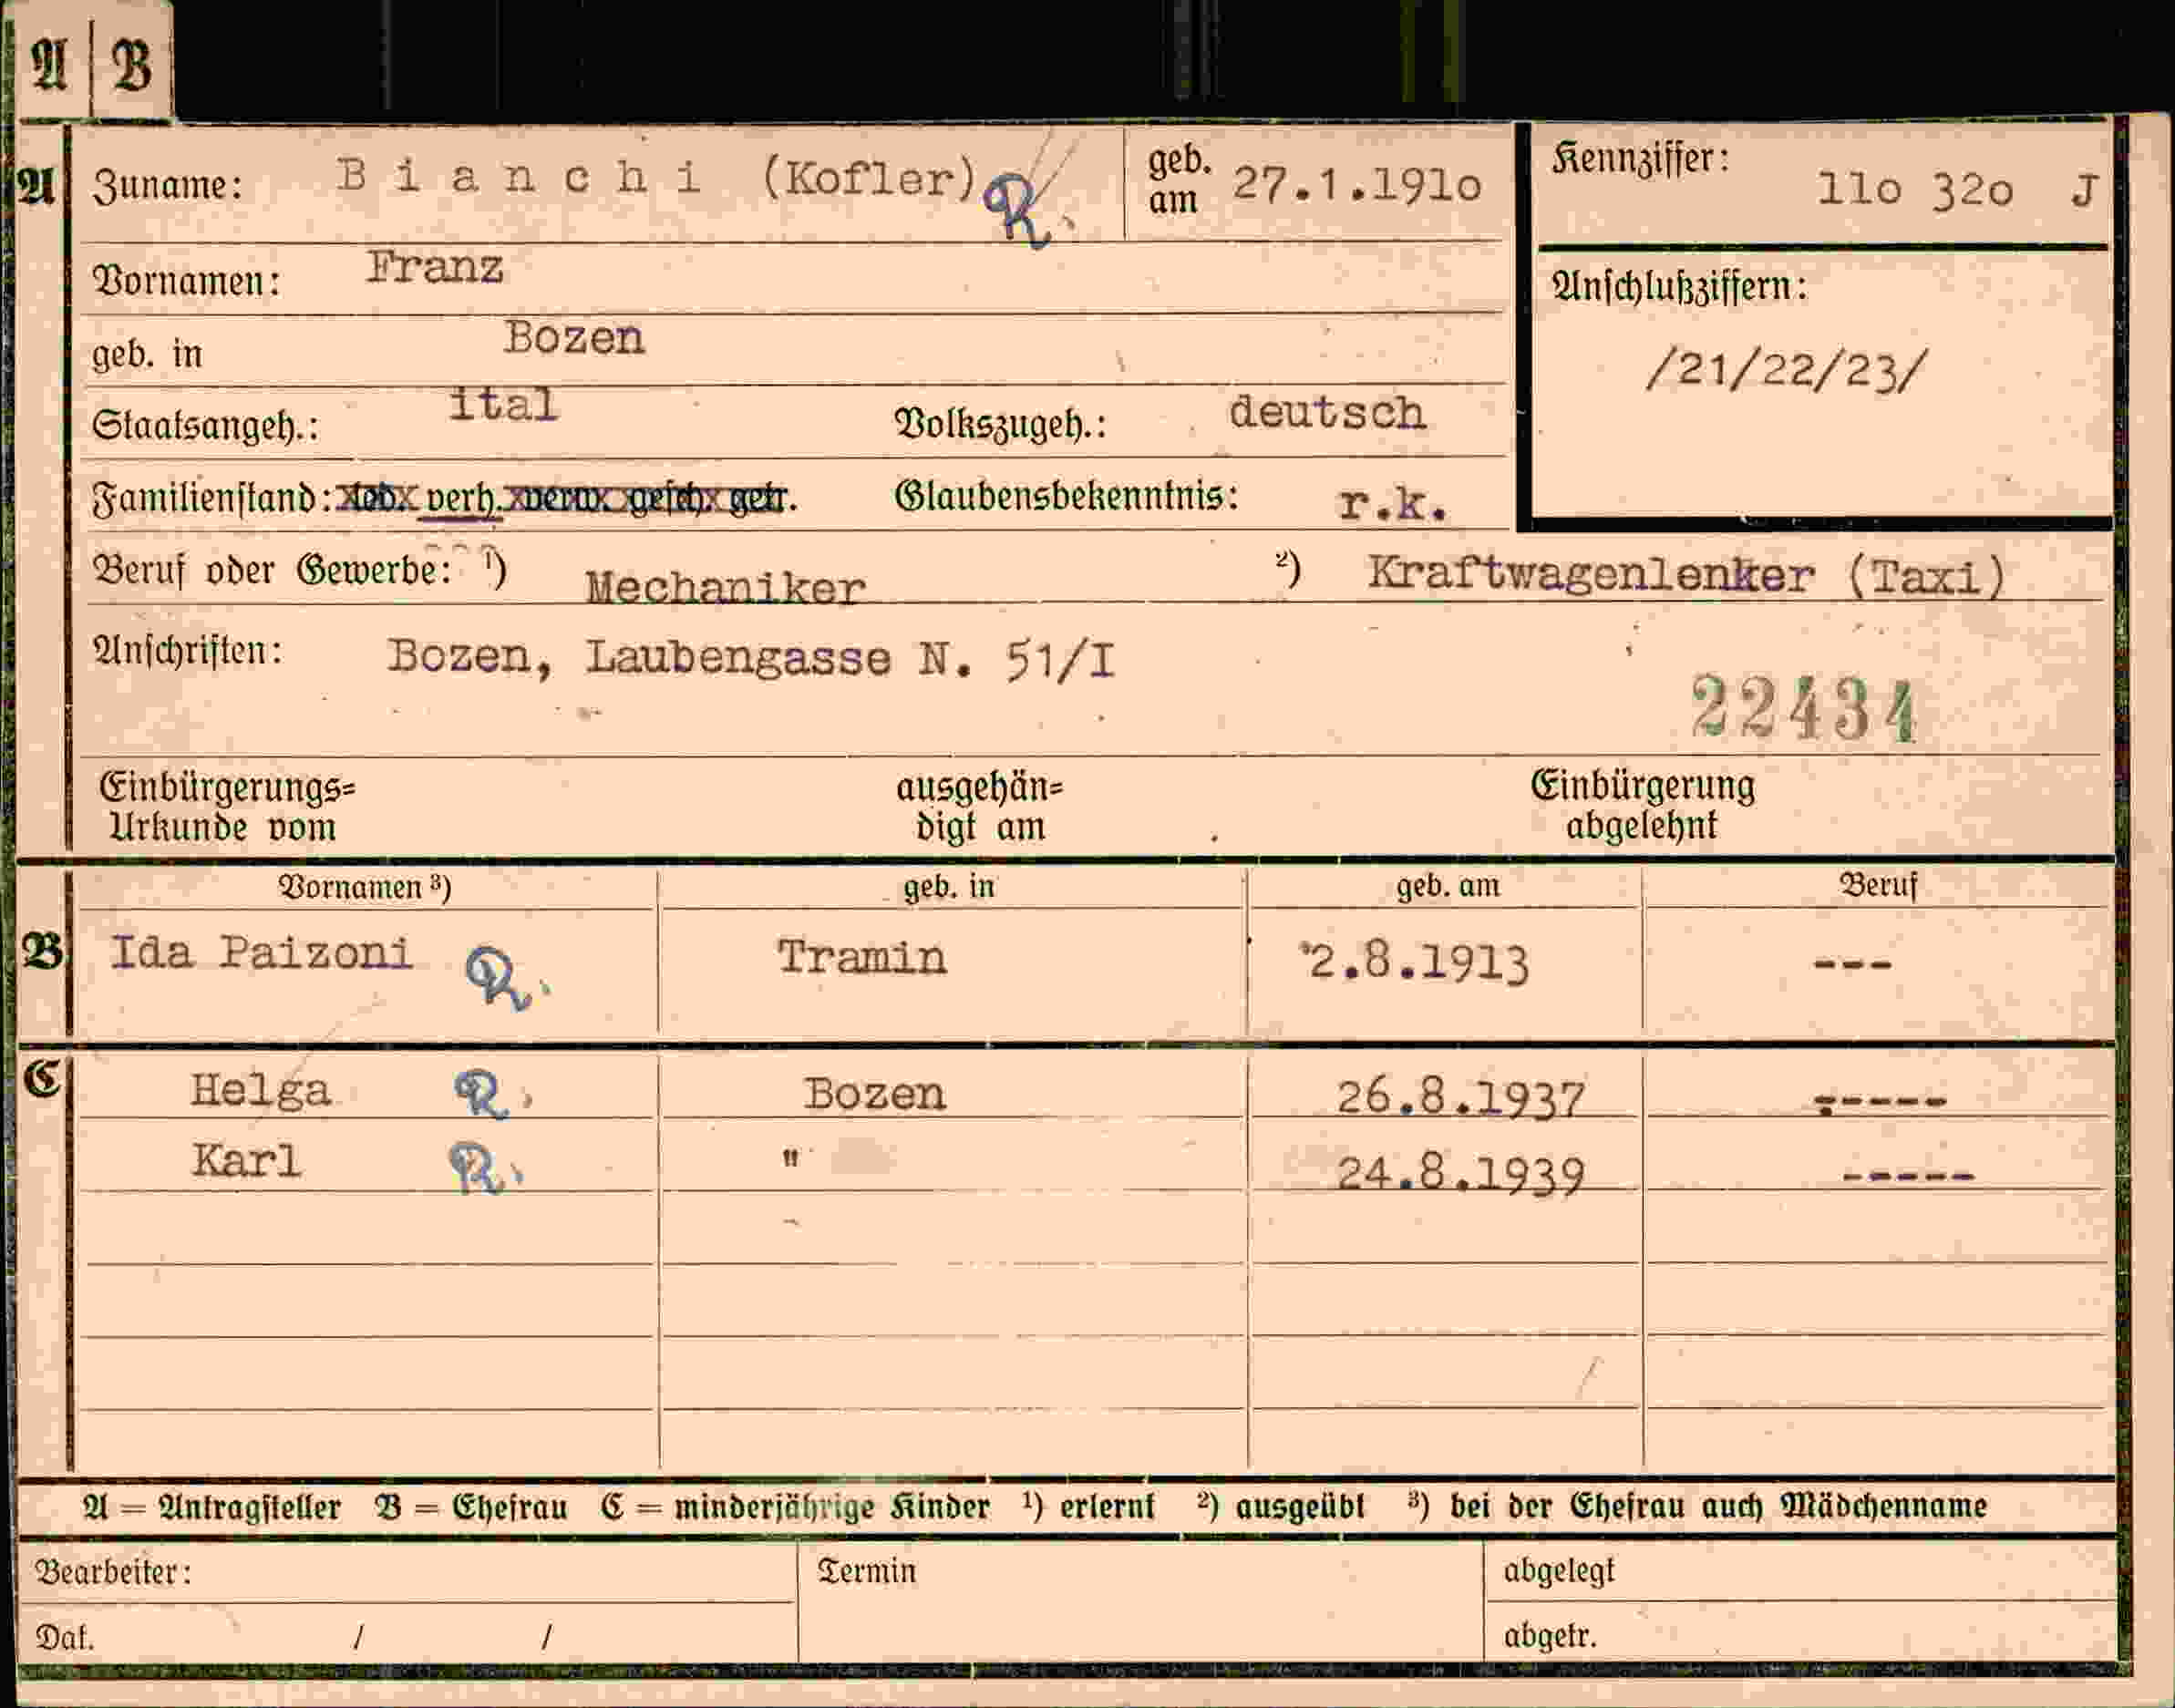 A B
A Zuname: Bianchi (Kofler) R. geb. am 27.1.1910 Kennziffer: 110 320 J
Vornamen: Franz
Anschlußziffern:
geb. in Bozen
/21/22/23/
Staatsangeh.: ital Volkszugeh.: deutsch
Familienstand: led. verh. verw. gesch. getr. Glaubensbekenntnis: r.k.
Beruf oder Gewerbe: ¹) Mechaniker ²) Kraftwagenlenker (Taxi)
Anschriften: Bozen, Laubengasse N. 51/I
22434
Einbürgerungs= ausgehän= Einbürgerung
Urkunde vom digt am abgelehnt
Vornamen ³) geb. in geb. am Beruf
B Ida Paizoni R. Tramin 2.8.1913 ---
C Helga R. Bozen 26.8.1937 -----
Karl R. " 24.8.1939 -----
A = Antragsteller B = Ehefrau C = minderjährige Kinder ¹) erlernt ²) ausgeübt ³) bei der Ehefrau auch Mädchenname
Bearbeiter: Termin abgelegt
Dat. / / abgetr.